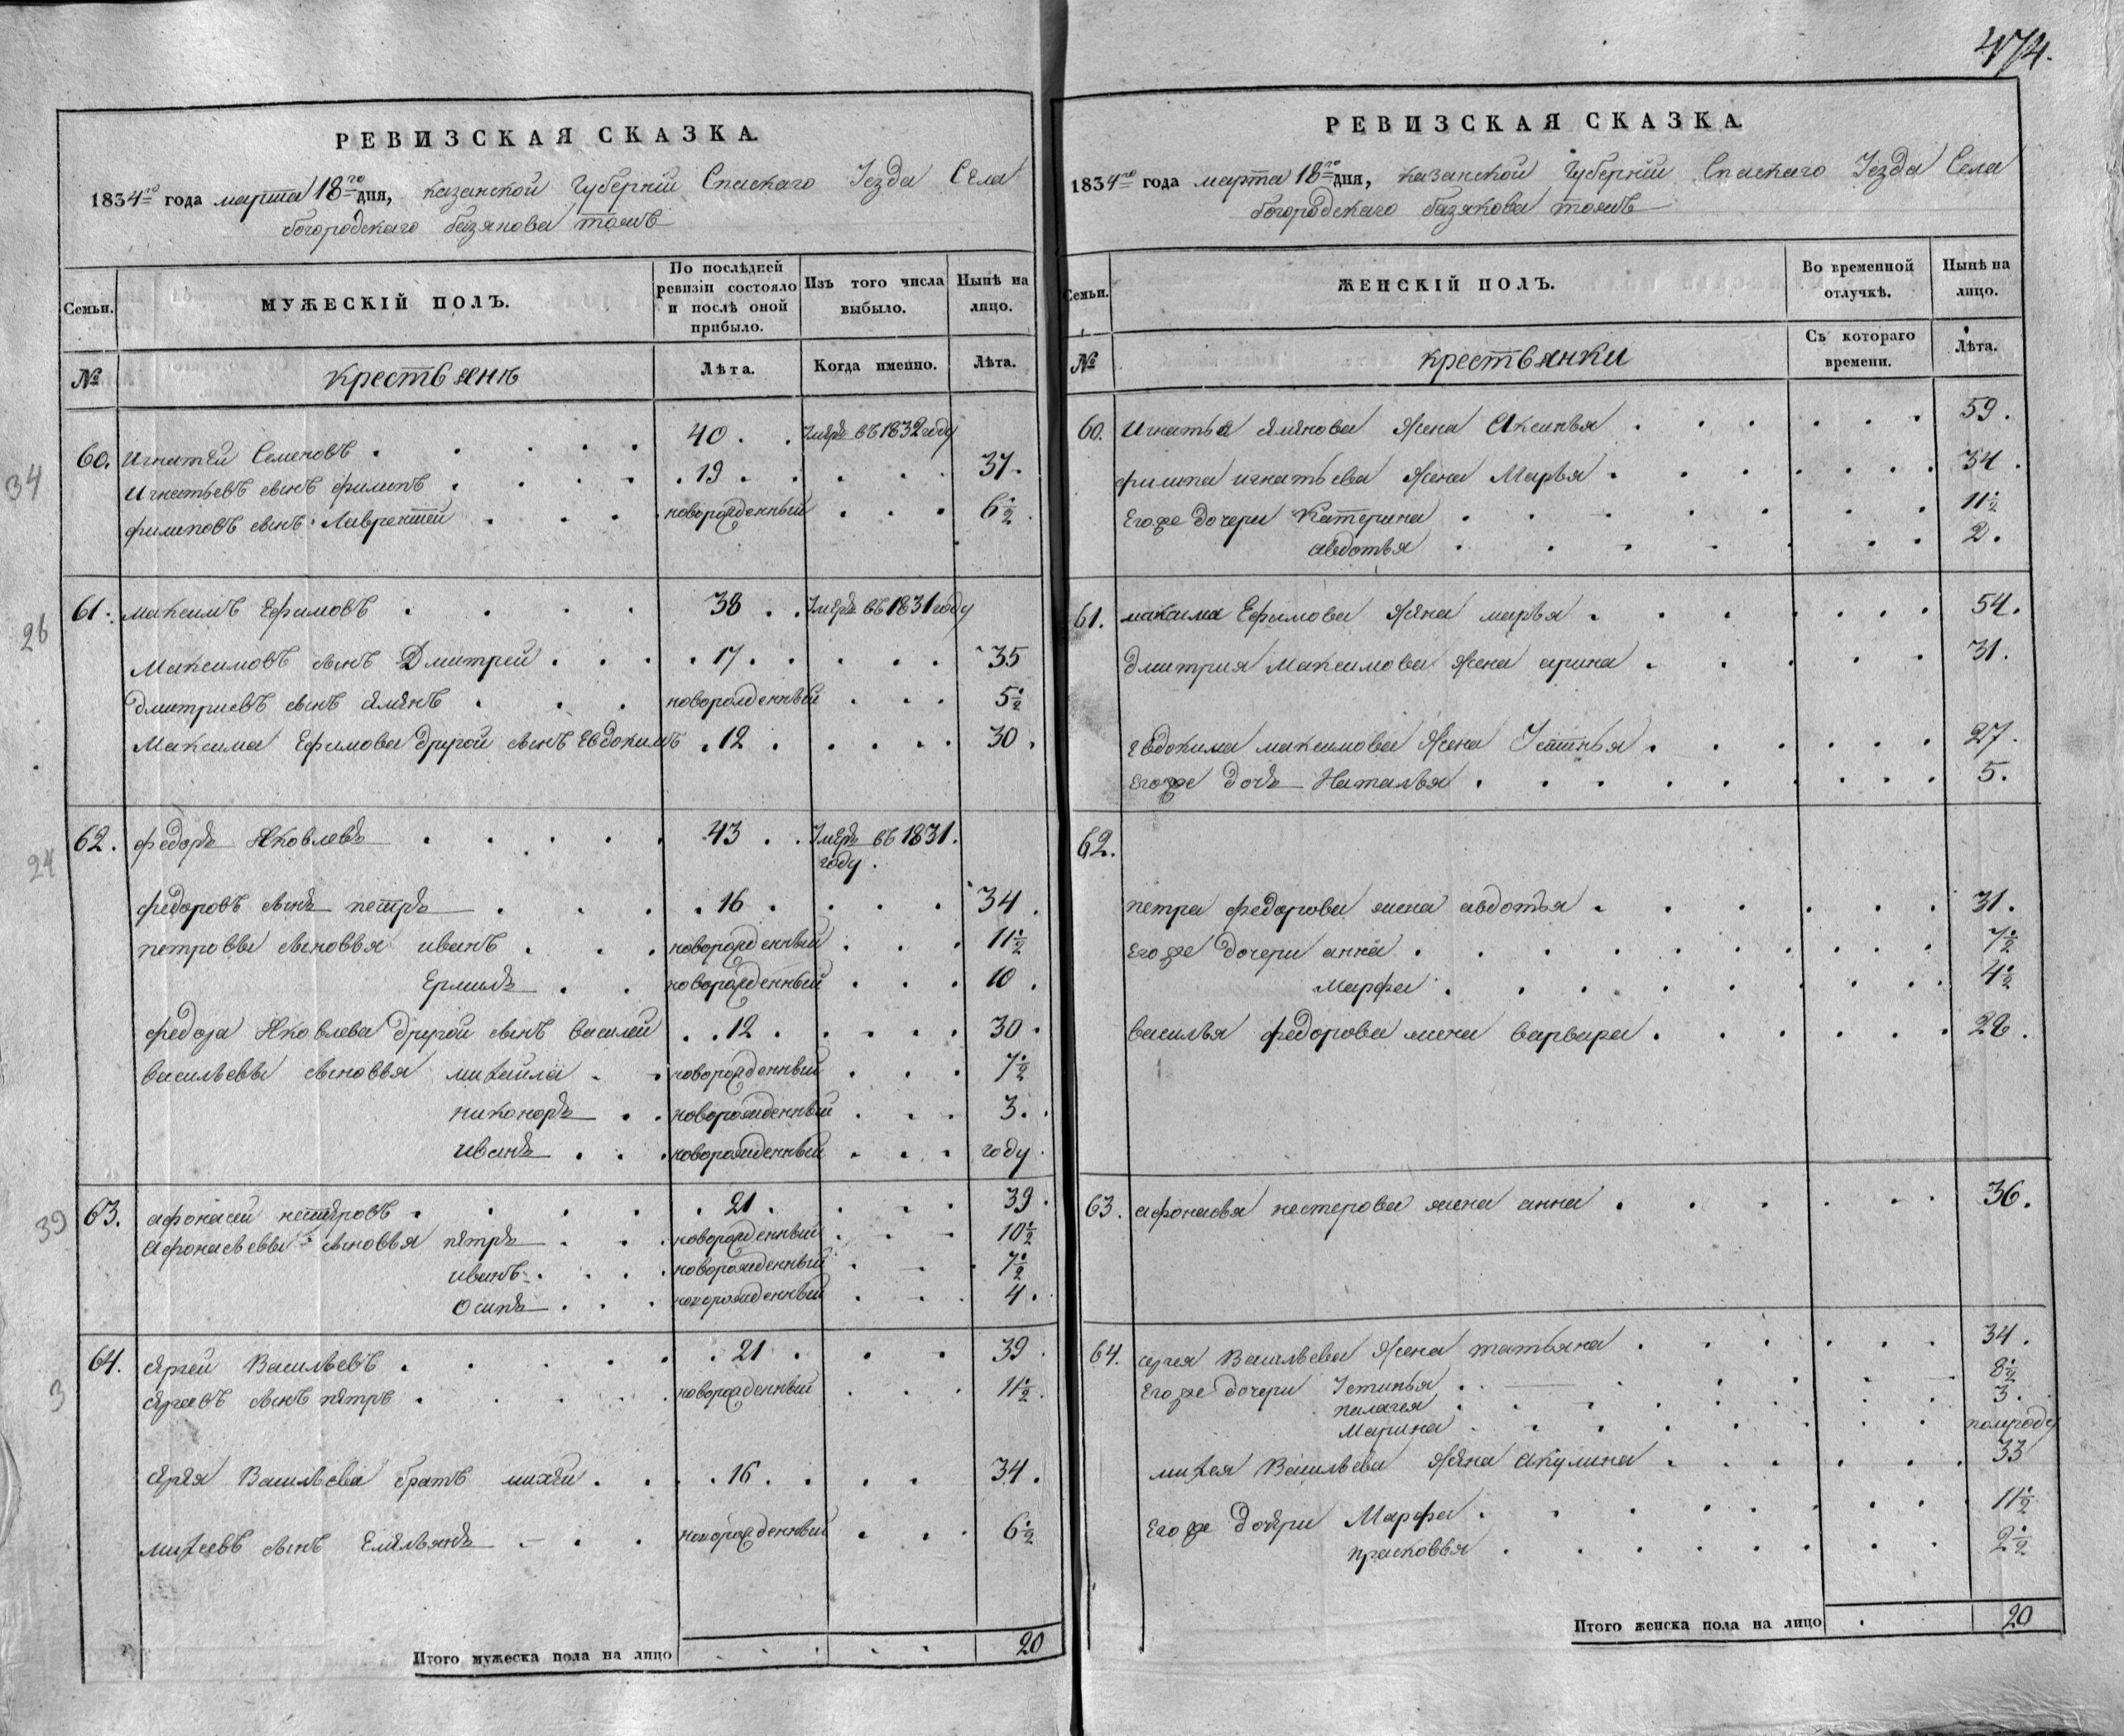 474.
РЕВИЗСКАЯ СКАЗКА.
1834го года марта 18го дня, казанской Губерніи Спаскаго Уезда Села
богородскаго базякова тожъ
Семьи. МУЖЕСКІЙ ПОЛЪ. По послѣдней ревизіи состояло и послѣ оной прибыло. Изъ того числа выбыло. Нынѣ на лицо.
№ крестьянѣ Лѣта. Когда именно. Лѣта.
34
60. Игнатей Семеновъ 40. Умеръ въ 1832 году
Игнатьевъ сынъ филипъ 19. 37.
филиповъ сынъ Лаврентей новорожденный 6½
26
61. максимъ Ефимовъ 38 Умеръ въ 1831 году
Максимовъ сынъ Дмитрей 17. 35
Дмитриевъ сынъ новорожденный 5½
Максима Ефимова другой сынъ Евдокимъ 12 30.
24
62. федоръ Яковлевъ 43 Умеръ въ 1831.
году.
федоровъ сынъ петръ 16 34.
петровы сыновья иванъ новорожденный 11½
Ермилъ новорожденный 10.
федора Яковлева другой сынъ василей 12 30.
васильевы сыновья михайла новорожденный 7½
никоноръ новорожденный 3.
иванъ новорожденный году
39
63. афонасей нестеровъ 21 39.
Афонасьевы сыновья петръ новорожденный 10½
иванъ новорожденный 7½
Осипъ новорожденный 4.
3
64. сергей Васильевъ 21 39
сергеевъ сынъ петръ новорожденный 11½.
Васильева братъ михей 16. 34.
михеевъ сынъ Емельянъ новорожденный 6½
Итого мужеска пола на лицо 20
РЕВИЗСКАЯ СКАЗКА
1834го года марта 18го дня, казанской Губерніи Спаскаго Уезда Села
богородскаго базякова тожъ
Семьи. ЖЕНСКІЙ ПОЛЪ. Во временной отлучкѣ. Нынѣ на лицо.
№ крестьянки Съ котораго времени. Лѣта.
60. Игнатья жена Аксинья 59.
филипа игнатьева жена Марья 34.
Егоже дочери Катерина 11½
авдотья 2.
61. максима Ефимова жена марья 54.
дмитрия Максимова жена арина 31.
Евдокима максимова жена Устинья 27.
Егоже дочь Наталья 5.
62.
петра федорова жена авдотья 31.
Егоже дочери анна 7½
Марфа 4½
василья федорова жена варвара 28.
63. афонасья нестерова жена анна 36.
64. сергея Васильева жена татьяна 34.
Егоже дочери Устинья 8½
пелагея 3.
Марина полугоду
михея Васильева жена акулина 33
Егоже дочери Марфа 11½
прасковья 2½
Итого женска пола на лицо 20